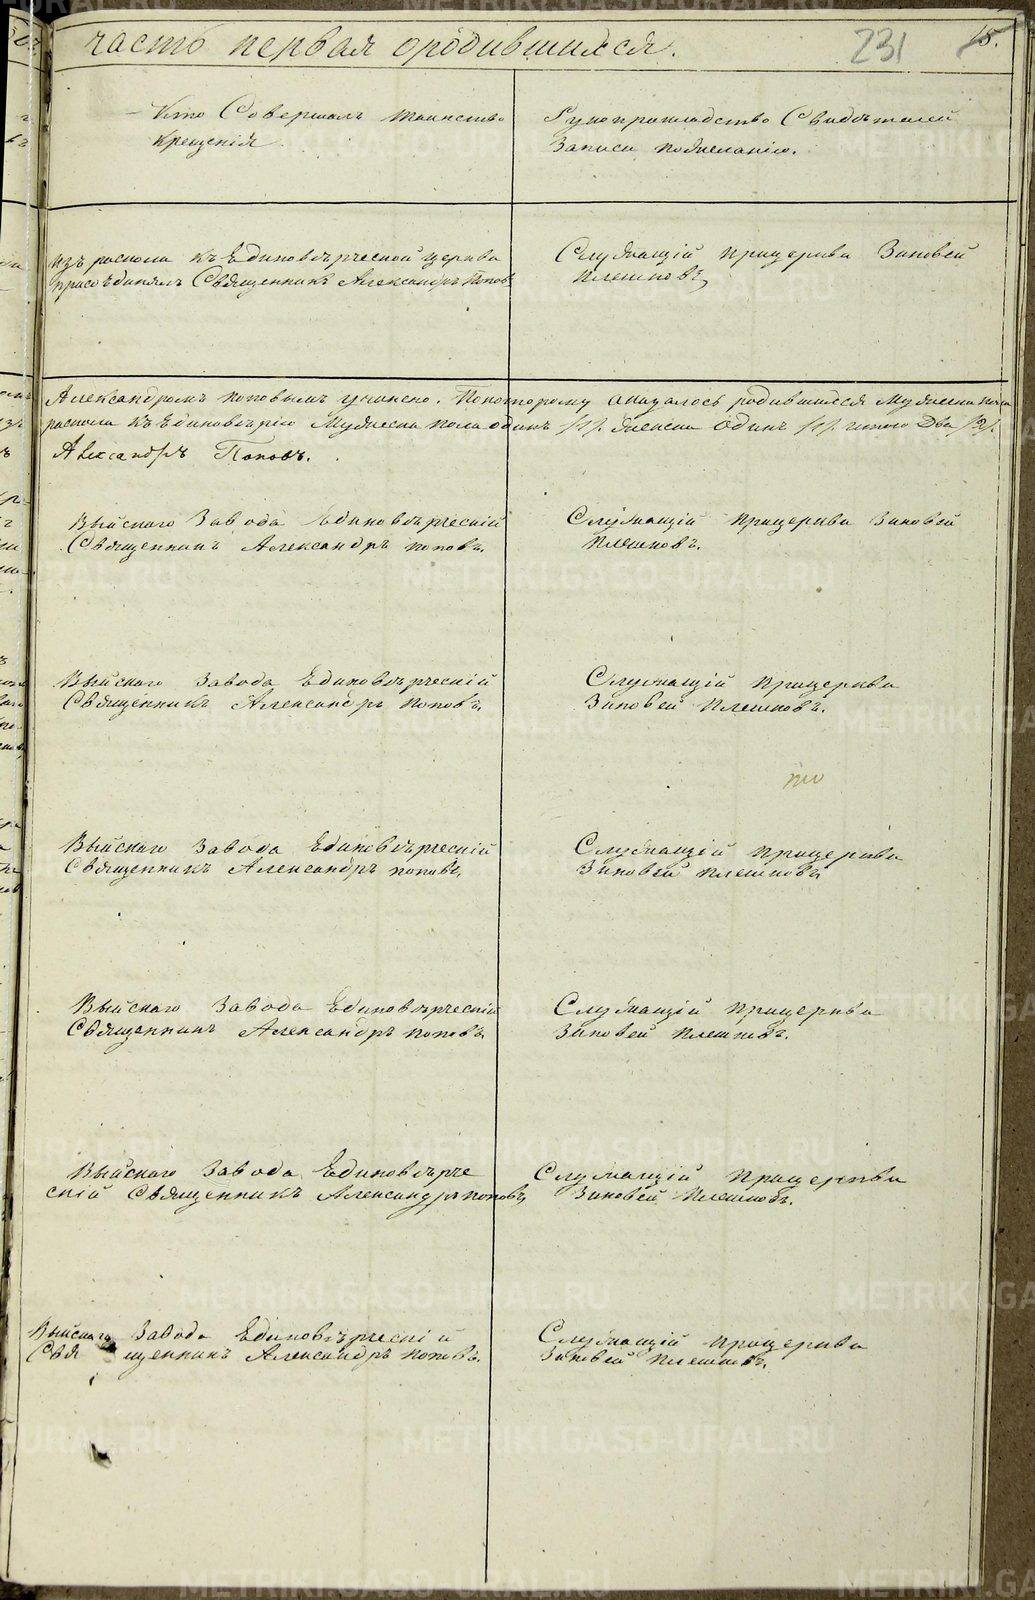 часть первая ородившихся.
231
15.
Кто Совершалъ таинство
Крещенія
Рукоприкладство Свидѣтелей
Записи пожеланію.
изъ раскола къ Единовѣрческой церкви
присоѣдинялъ Священникъ Александръ Поповъ
Служащій прицеркви Зиновей
Плешковъ
Александромъ поповымъ учинено. Покоторому оказалось родившихся Мужеска пола
раскола къ Единовѣрію Мужеска пола одинъ /1/. женска Одинъ /1/. итого Два /2/.
Александръ Поповъ.
Выйскаго Завода Единовѣрческій
Священникъ Александръ поповъ.
Служащій прицеркви Зиновей
Плешковъ.
Выйскаго завода Единовѣрческій
Священникъ Александръ поповъ.
Служащій прицеркви
Зиновей Плешковъ.
Выйскаго завода Единовѣрческій
Священникъ Александръ поповъ.
Служащій прицеркви
Зиновей плешковъ
Выйскаго Завода Единовѣрческій
Священникъ Александръ поповъ.
Служащій прицеркви
Зиновей плешковъ.
Выйскаго завода Единовѣрче
скій Священникъ Александръ поповъ
Служащій прицеркви
Зиновей Плешковъ.
Выйскаго Завода Единовѣрческій
Священникъ Александръ поповъ.
Служащій прицеркви
Зиновей Плешковъ.
METRIKI.GASO-URAL.RU